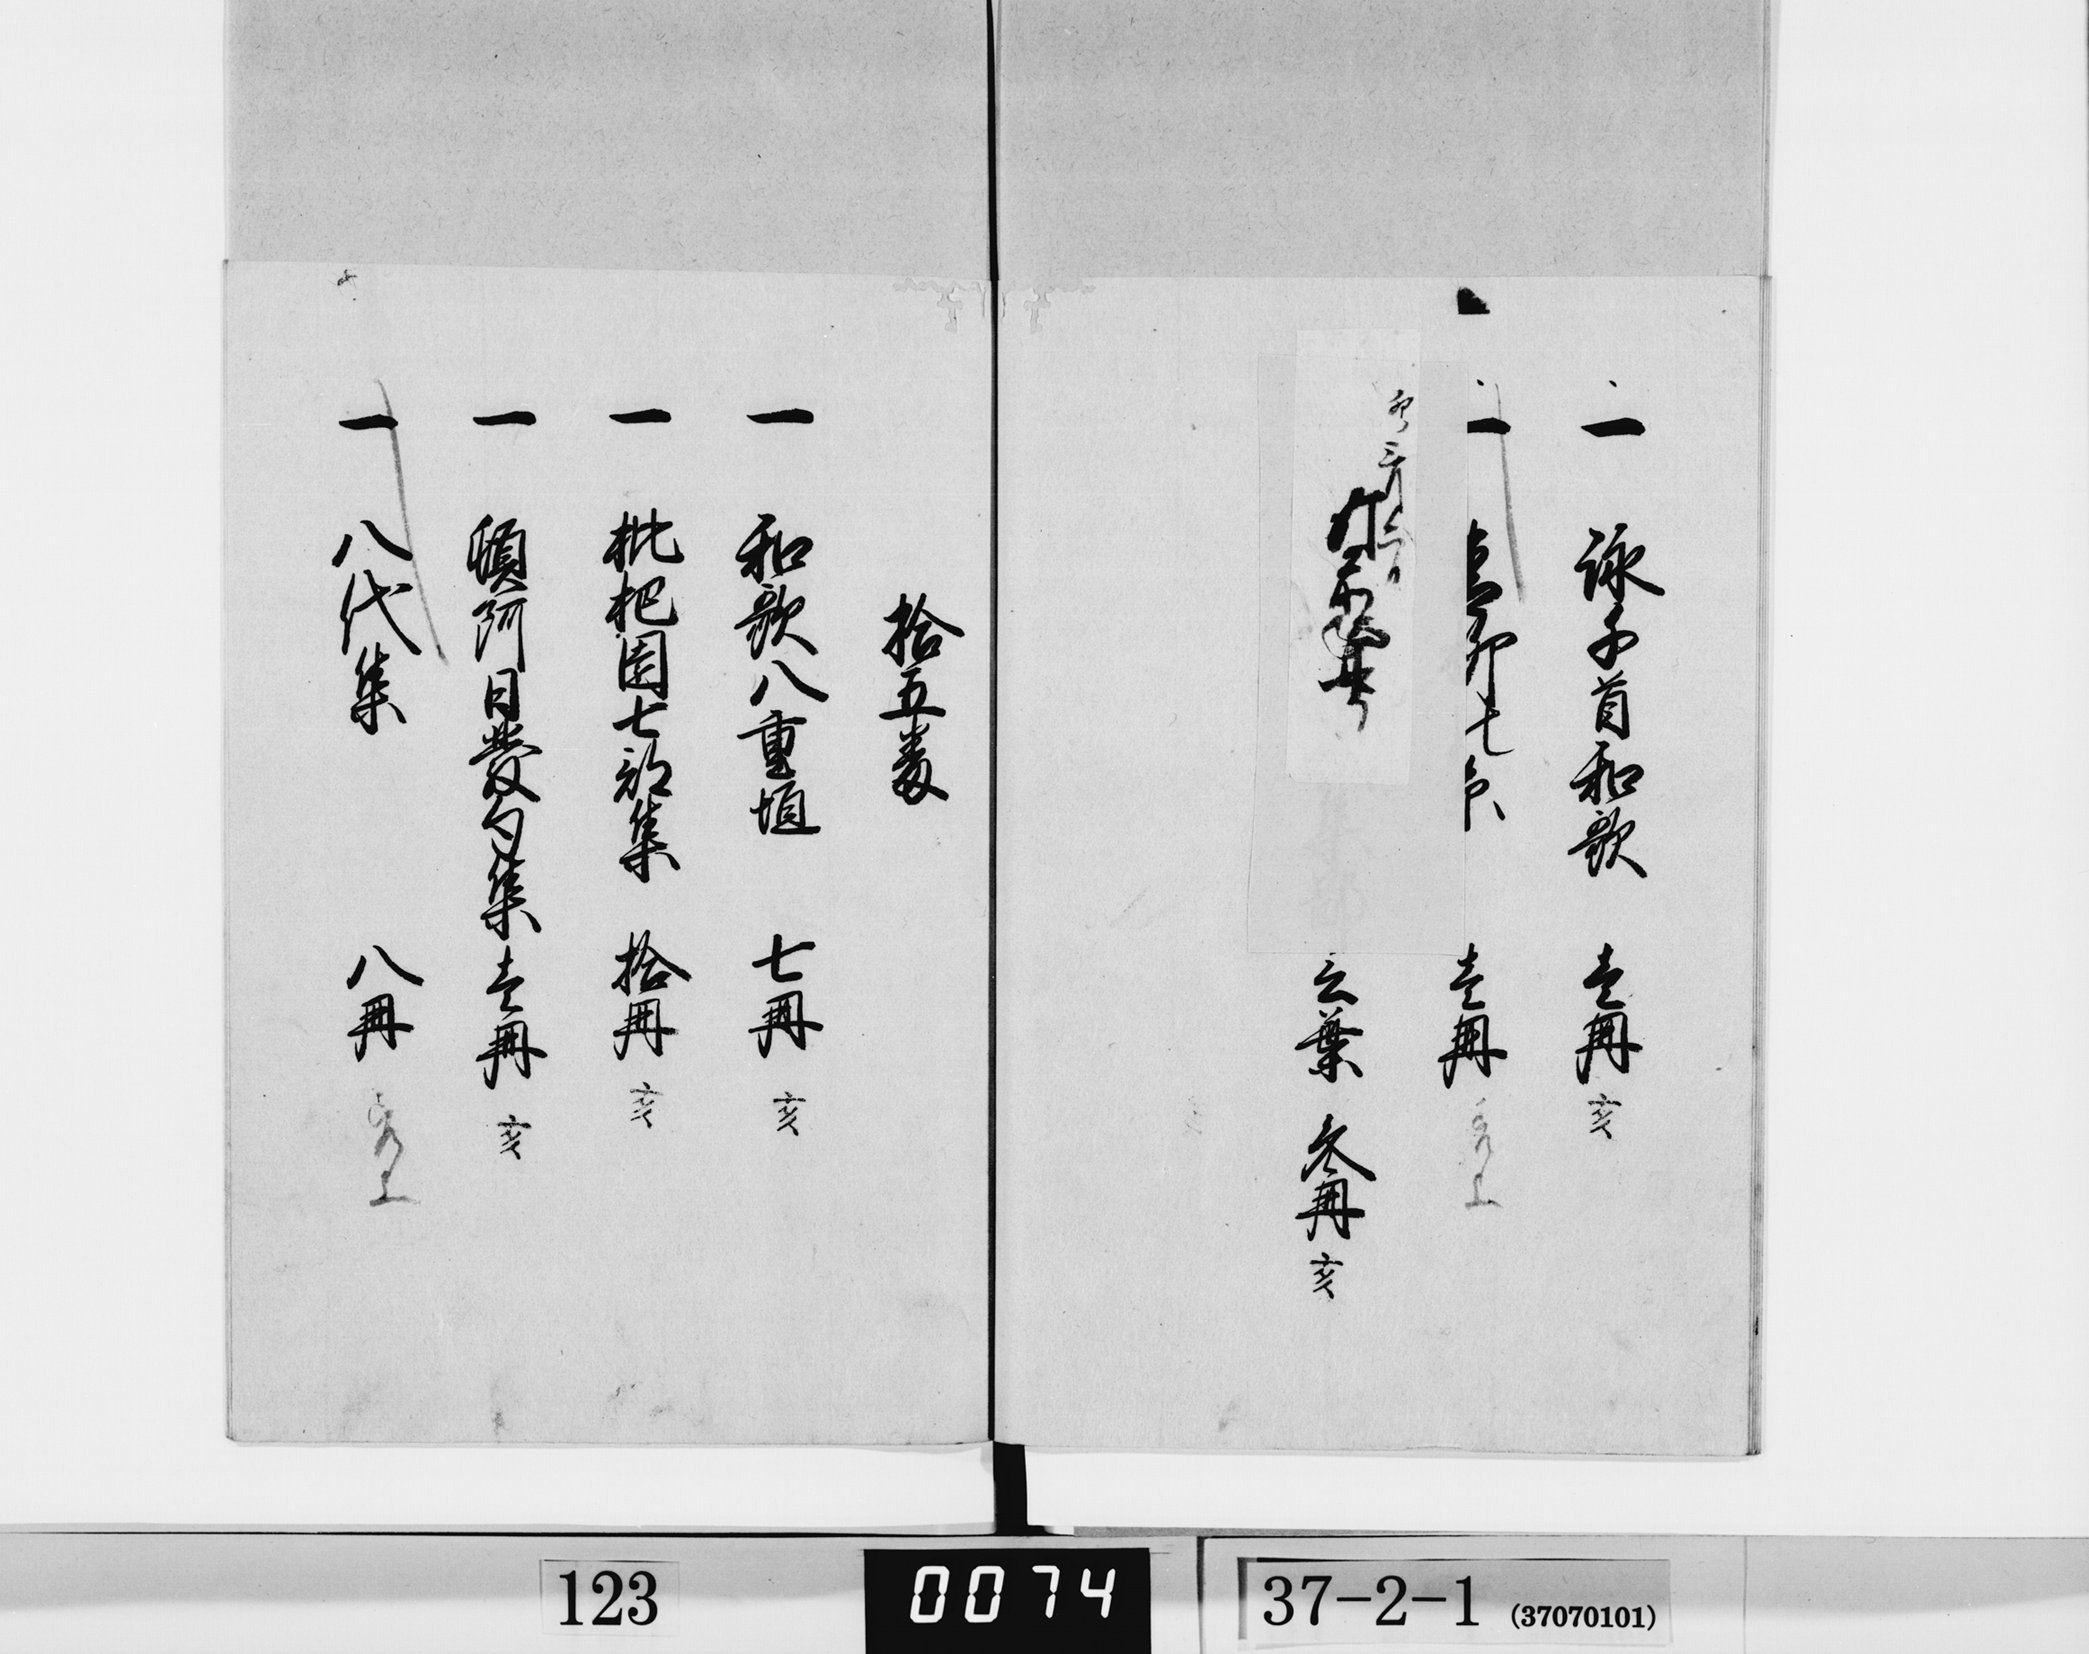 一 詠千首和歌 壱冊 亥
一 壱冊
三葉 冬冊 亥
拾五番
一 和歌八重垣 七冊 亥
一 枇杷園七部集 拾冊 亥
一 頓阿日發句集 壱冊 亥
一 八代集 八冊
123
0074
37-2-1 (37070101)